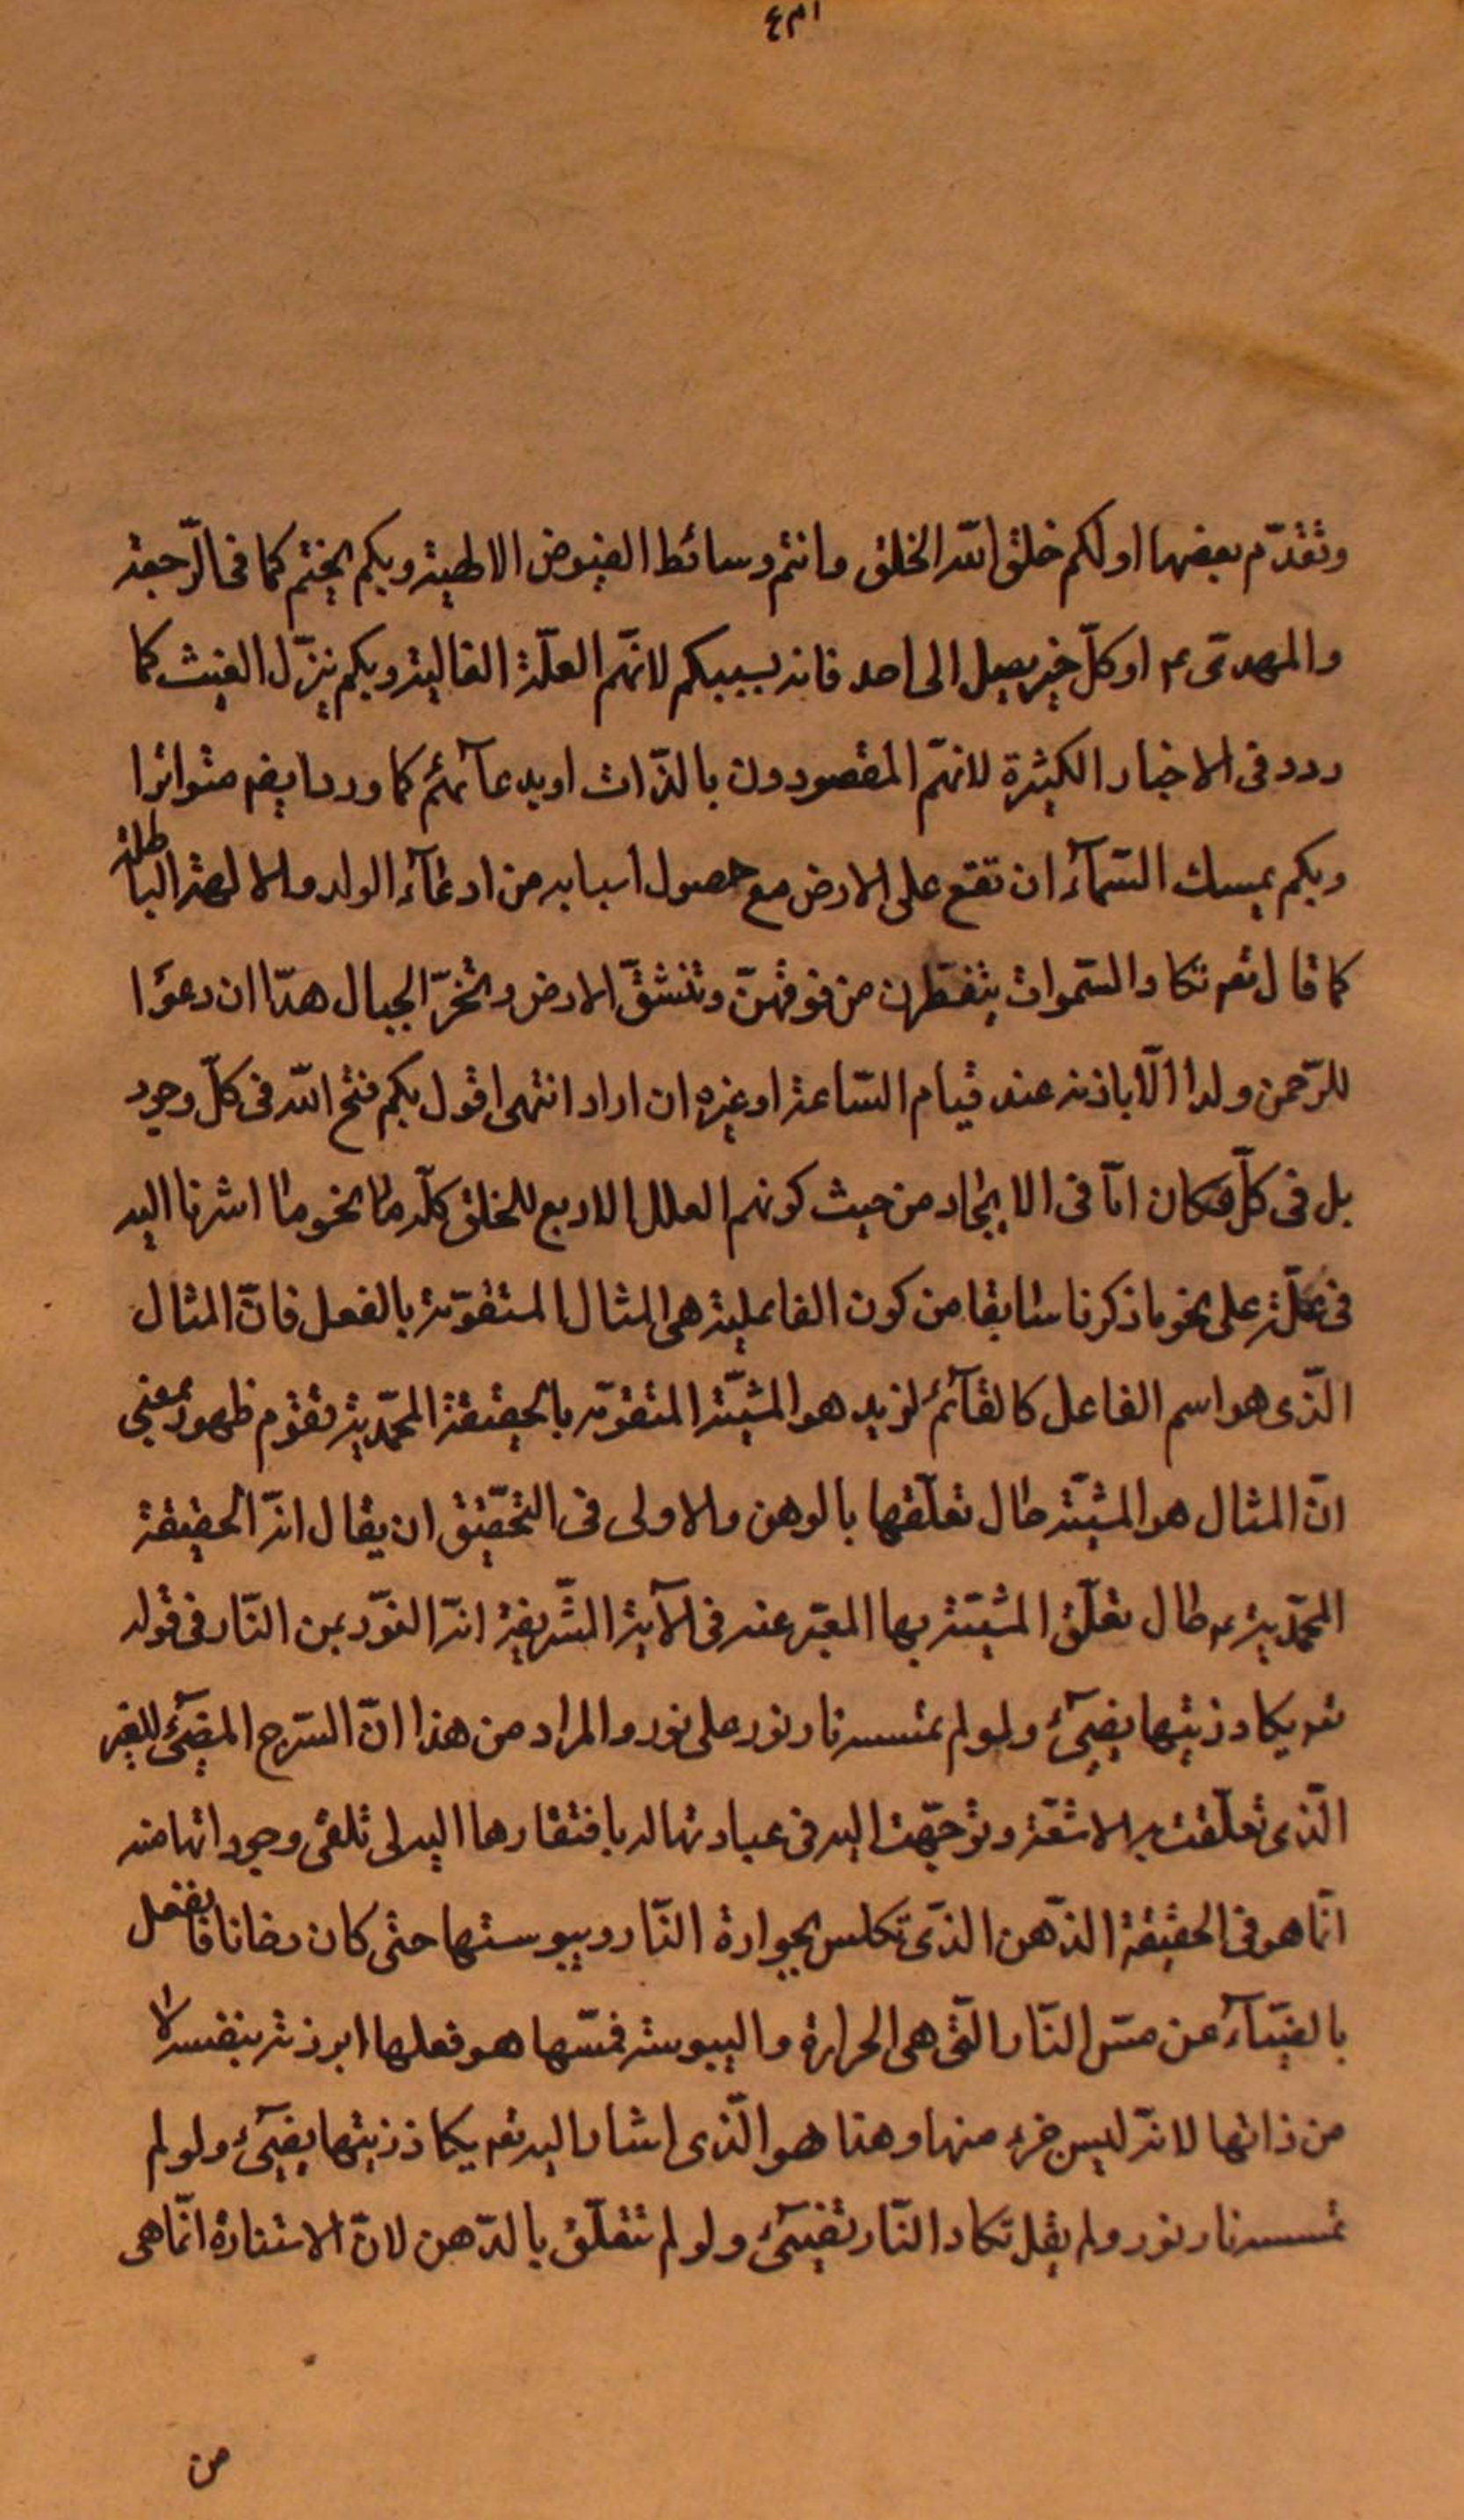 وتقدّم بعضها اولكم خلق الله الخلق وانتم وسائط الفيوض الالهية وبكم يختم كما فى الرّجعة
والمهدىّ ع او كلّ خير يصل الى احد فانه بسببكم لانّهم العلّة الغائية وبكم ينزّل الغيث كما
ورد فى الاخبار الكثيرة لانهّم المقصودون بالذّات او بدعآئهم كما ورد ايضم متواترا
وبكم يمسك السّمآء ان تقع على الارض مع حصول اسبابه من ادعآء الولد والالهة الباطلة
كما قال تعم تكاد السّموات يتفطرن من فوقهنّ وتنشقّ الارض وتخرّ الجبال هدّا ان دعوا
للرّحمن ولدا الّا باذنه عند قيام السّاعة او غيره ان اراد انتهى اقول بكم فتح الله فى كلّ وجود
بل فى كلّ مكان امّا فى الايجاد من حيث كونهم العلل الاربع للخلق كلّه على نحو ما اشرنا اليه
فى علّة على نحو ما ذكرنا سابقا من كون الفاعلية هى المثال المتقوّمة بالفعل فانّ المثال
الّذى هو اسم الفاعل كالقآئم لزيد هو المشيّة المتقوّمة بالحقيقة المحمّدية تقوّم ظهور بمعنى
انّ المثال هو المشيّة حال تعلّقها بالدهن والاولى فى التحّقيق ان يقال انّه الحقيقة
المحمّدية ع حال تعلّق المشيّة بها المعبّر عنه فى الآية الشّريفة انّه النّور من النّار فى قوله
تعم يكاد زيتها يضىء ولو لم تمسسه نار نور على نور والمراد من هذا انّ السّرج المضىء للغير
الّذى تعلّقت به الاشعّة وتوجّهت اليه فى عبادتها له بافتقارها اليه لى تلقى وجوداتها منه
انّما هو فى الحقيقة الدّهن الذّى تكلس بحرارة النّار ويبوستها حتى كان دخانا فانفعل
بالضيآء عن مسّ النّار الّتى هى الحرارة واليبوسة فمسّها هو فعلها ابرزته بنفسه لا
من ذاتها لانّه ليس جزء منها وهذا هو الّذى اشار اليه تعم يكاد زيتها يضىء ولو لم
تمسسه نار نور ولم يقل تكاد النّار تضىء ولو لم تتعلّق بالدّهن لانّ الاستنارة انّما هى
من